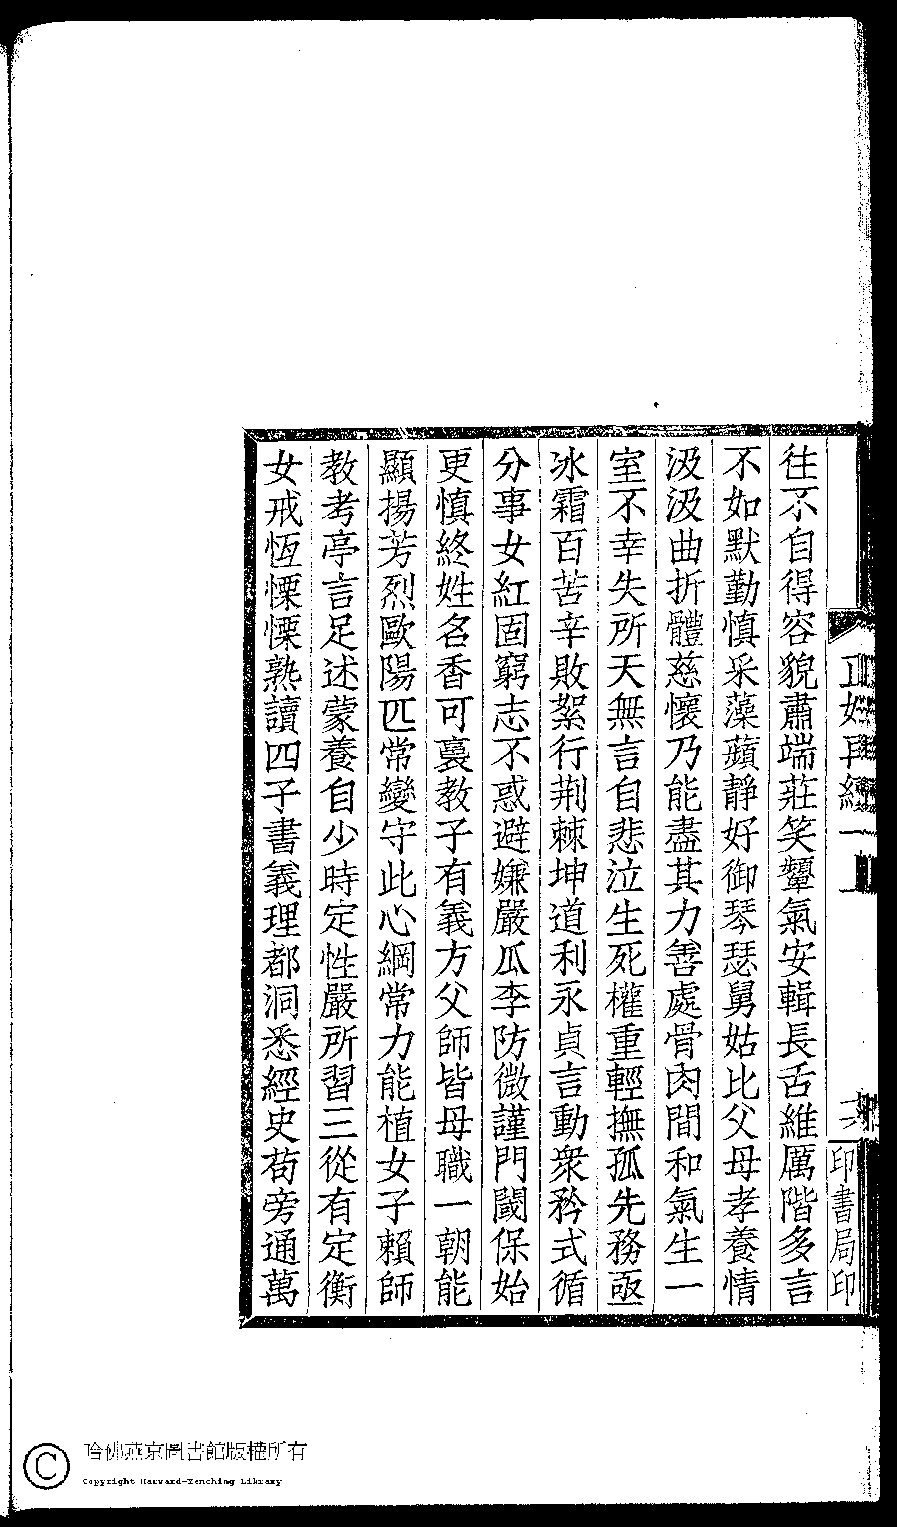 往不自得容貌肅端莊笑顰氣安輯長舌維厲階多言
不如默勤慎采藻蘋靜好御琴瑟舅姑比父母孝養情
汲汲曲折體慈懷乃能盡其力善處骨肉間和氣生一
室不幸失所天無言自悲泣生死權重輕撫孤先務亟
冰霜百苦辛敗絮行荆棘坤道利永貞言動衆矜式循
分事女紅固窮志不惑避嫌嚴瓜李防微謹門閾保始
更慎終姓名香可裛教子有義方父師皆母職一朝能
顯揚芳烈歐陽匹常變守此心綱常力能植女子賴師
教考亭言足述蒙養自少時定性嚴所習三從有定衡
女戒恆慄慄熟讀四子書義理都洞悉經史苟旁通萬
印書局印
哈佛燕京圖書館版權所有
Copyright Harvard-Yenching Library